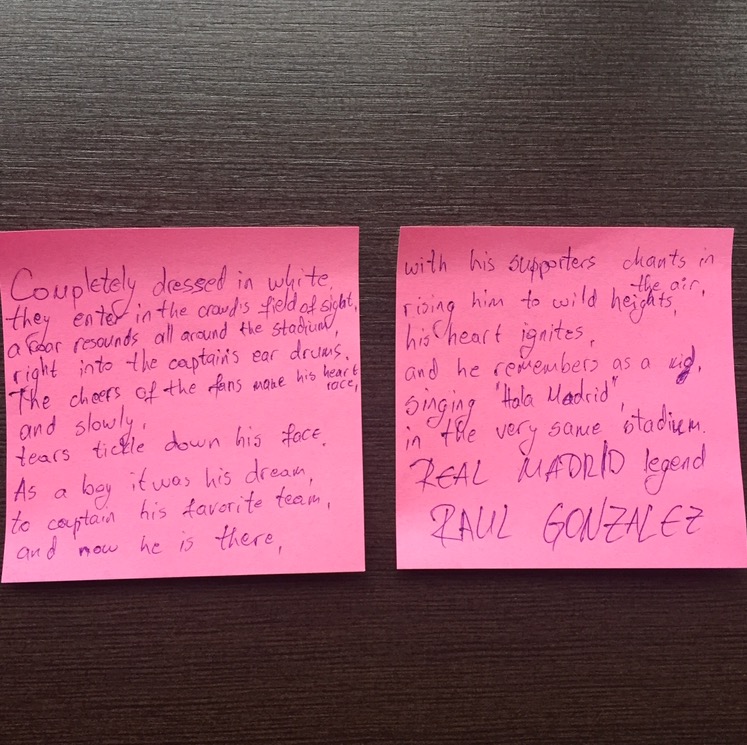 Completely dressed in white,
they enter in the crowd's field of sight,
a roar resounds all around the stadium,
right into the captain's ear drums.
The cheers of the fans make his heart
race,
and slowly,
tears tickle down his face.
As a boy it was his dream,
to captain his favorite team,
and now he is there,
with his supporters chants in
the air,
rising him to wild heights,
his heart ignites,
and he remembers as a kid,
singing "Hala Madrid",
in the very same stadium.
REAL MADRID legend
RAUL GONZALEZ